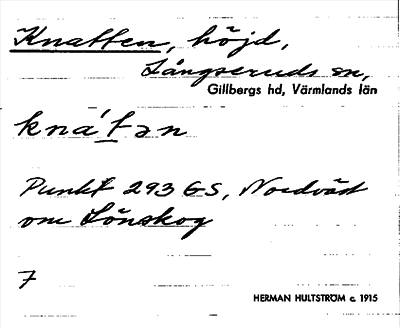 Knatten, höjd,
Långseruds sn,
Gillbergs hd, Värmlands län
kna´tən
Punkt 293 GS, Nordväst
om Lönskog
7
HERMAN HULTSTRÖM c. 1915